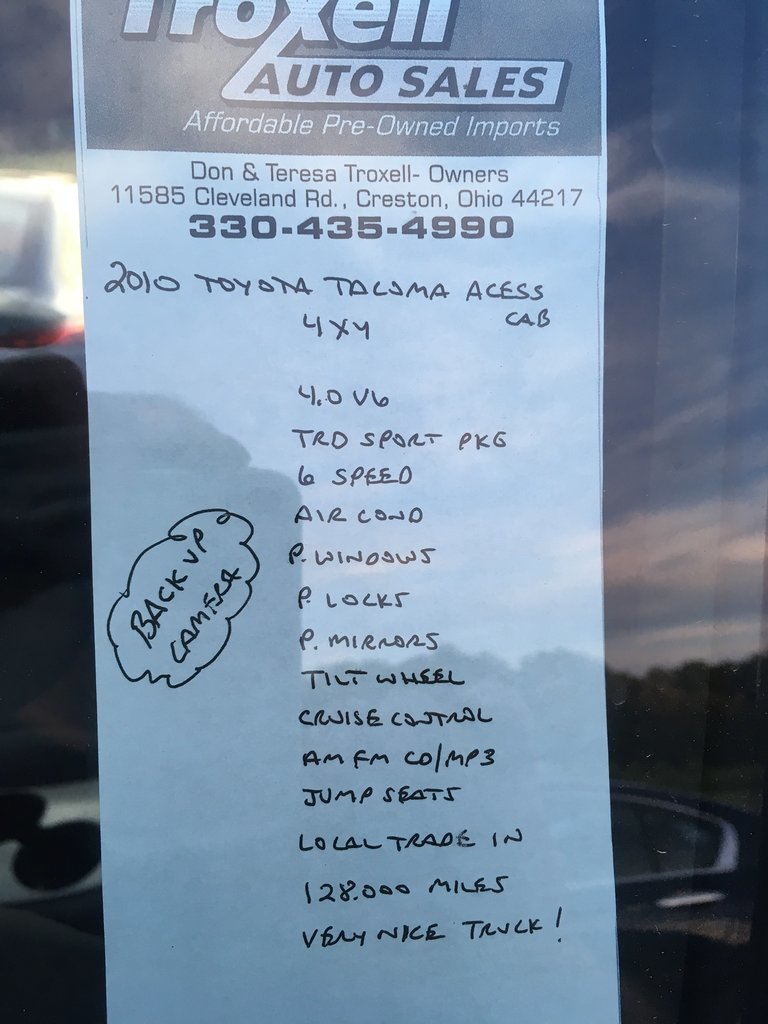 Troxell
AUTO SALES
Affordable Pre-Owned Imports
Don & Teresa Troxell- Owners
11585 Cleveland Rd., Creston, Ohio 44217
330-435-4990
2010 TOYOTA TACOMA ACESS
CAB
4X4
4.0 V6
TRD SPORT PKG
6 SPEED
AIR COND
P. WINDOWS
P. LOCKS
P. MIRRORS
TILT WHEEL
CRUISE CONTROL
AM FM CD/MP3
JUMP SEATS
LOCAL TRADE IN
128.000 MILES
VERY NICE TRUCK!
BACK UP
CAMERA